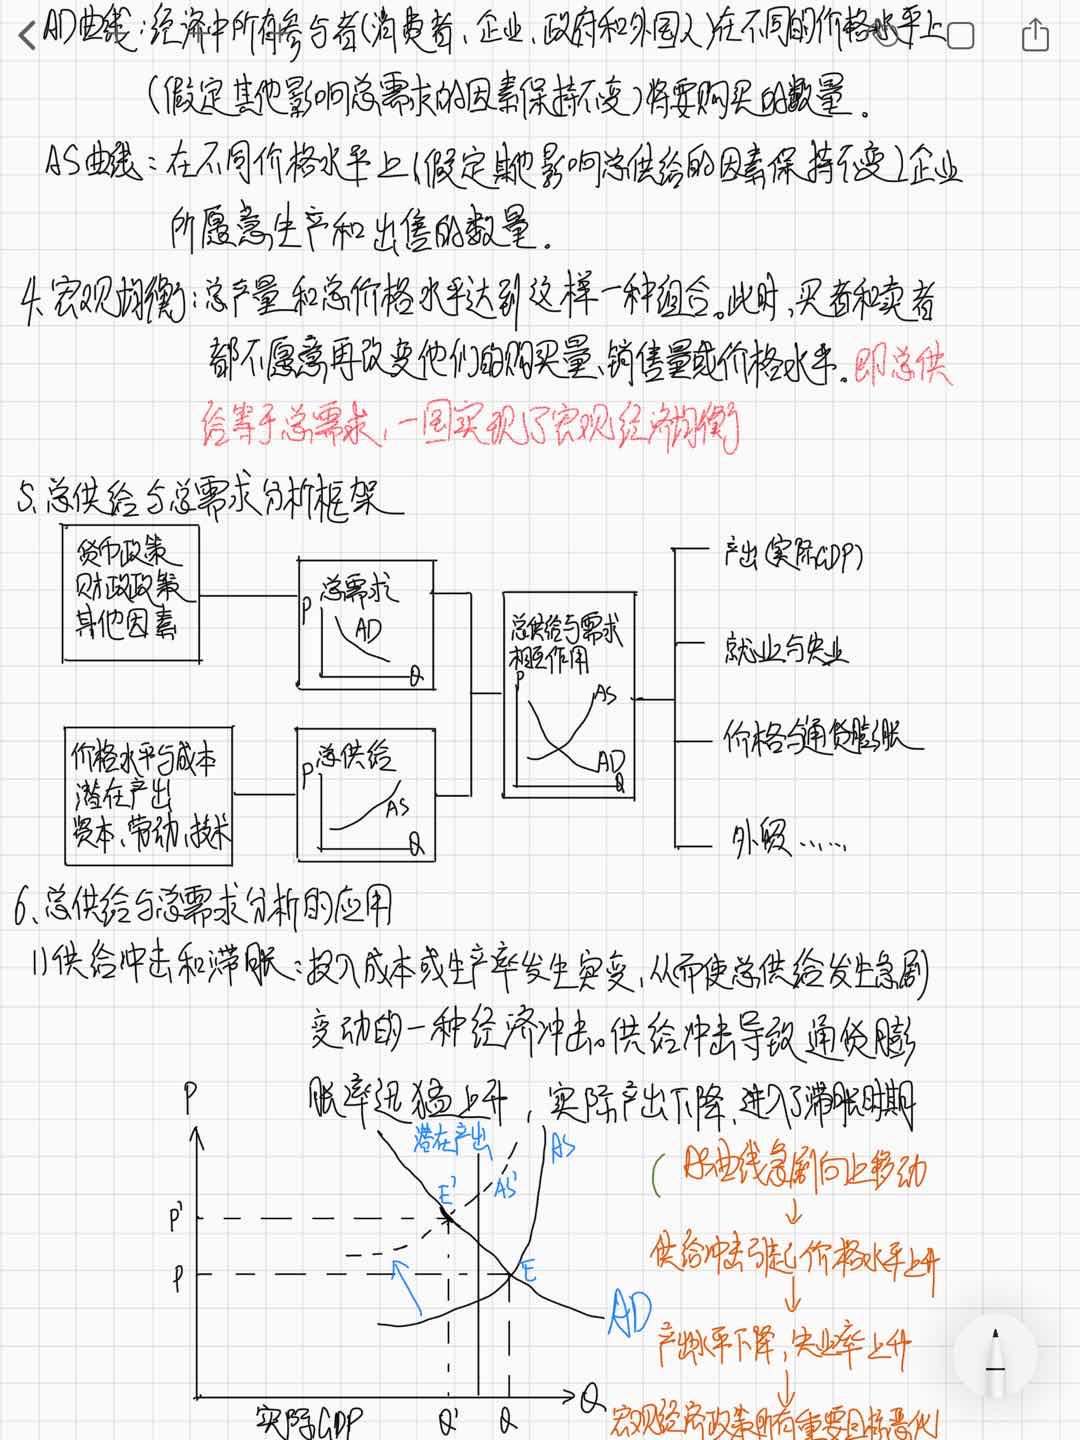 AD曲线:经济中所有参与者(消费者、企业、政府和外国人)在不同的价格水平上
(假定其他影响总需求的因素保持不变)将要购买的数量。
AS曲线:在不同价格水平上(假定其他影响总供给的因素保持不变)企业
所愿意生产和出售的数量。
4.宏观均衡:总产量和总价格水平达到这样一种组合。此时,买者和卖者
都不愿意再改变他们的购买量、销售量或价格水平。即总供
给等于总需求,一国实现了宏观经济均衡
5、总供给与总需求分析框架
货币政策
财政政策
其他因素
总需求
P
AD
Q
价格水平与成本
潜在产出
资本、劳动、技术
总供给
P
AS
Q
总供给与需求
相互作用
P
AS
AD
Q
产出(实际GDP)
就业与失业
价格与通货膨胀
外贸……
6、总供给与总需求分析的应用
1)供给冲击和滞胀:投入成本或生产率发生突变,从而使总供给发生急剧
变动的一种经济冲击。供给冲击导致通货膨
胀率迅猛上升,实际产出下降,进入了滞胀时期
P
潜在产出
AS
AS'
E'
P'
P
E
AD
Q' Q
Q
实际GDP
(AS曲线急剧向上移动
↓
供给冲击引起价格水平上升
↓
产出水平下降,失业率上升
↓
宏观经济政策所有重要目标恶化